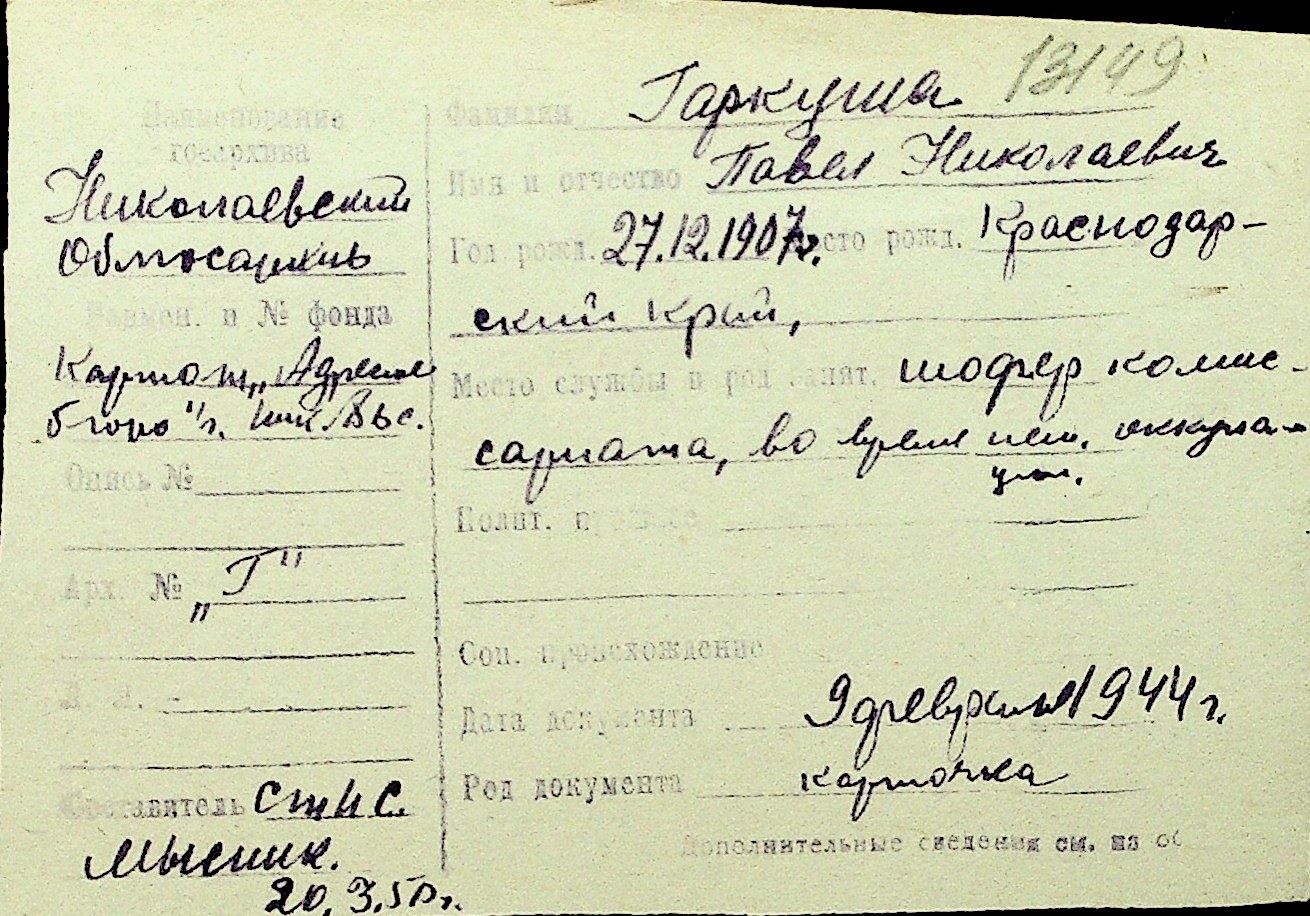 Наименование
госархива
Николаевский
Облгосархив
Наимен. и № фонда
Картот. „Адресное
бюро" г.
Опись №
Арх. № „Г"
Л. л. -
Составитель ст. н. с.
Мысник.
20.3.50 г.
13149
Фамилия Гаркуша
Имя и отчество Павел Николаевич
Год рожд. 27.12.1907г. Место рожд. Краснодар-
ский край,
Место службы и род занят. шофер комис-
сариата, во время нем. оккупа-
ции.
Полит. прошлое
Соц. происхождение
Дата документа 9 февраля 1944 г.
Род документа карточка
Дополнительные сведения см. на об